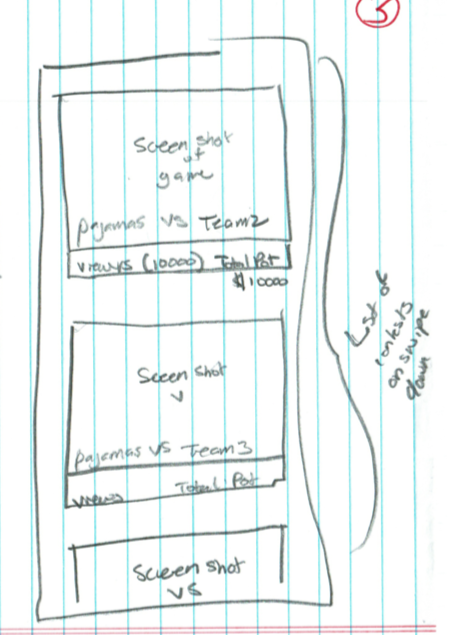 5
Screen shot
of
game
pajamas vs Team2
viewrs (10000) Total Pot
$10000
Sceen shot
v
pajamas vs Team3
views Total Pot
Screen shot
vs
List of
contests
on swipe
down